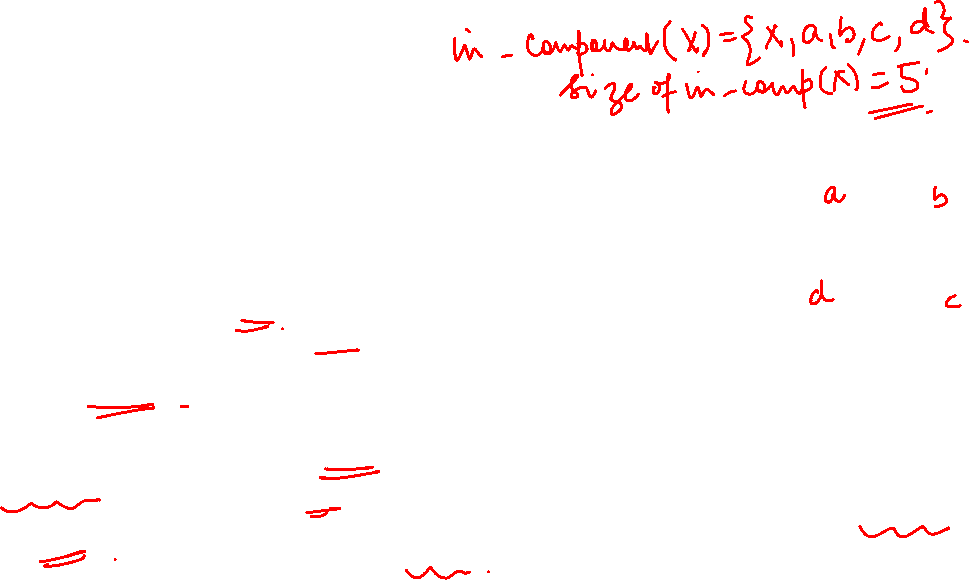 in_component(x)={x,a,b,c,d}.
size of in_comp(x)=5
a b
d c